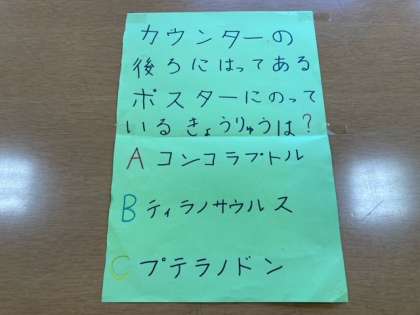 カウンターの
後ろにはってある
ポスターにのって
いるきょうりゅうは？
A コンコラプトル
B ティラノサウルス
C プテラノドン